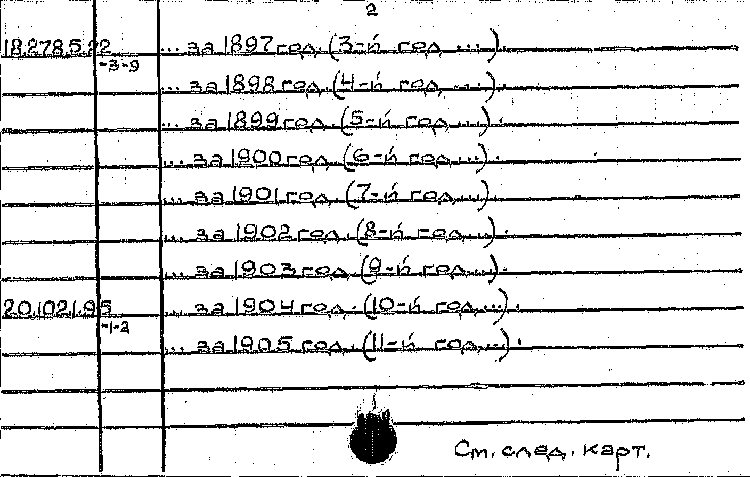 2
18.278.5.22 ... за 1897 год. (3-й год ...).
-3-9
... за 1898 год. (4-й год ...).
... за 1899 год. (5-й год ...).
... за 1900 год. (6-й год ...).
... за 1901 год. (7-й год ...).
... за 1902 год. (8-й год ...).
... за 1903 год. (9-й год ...).
20.102.1.95 ... за 1904 год. (10-й год ...).
-1-2
... за 1905 год. (11-й год ...).
См. след. карт.